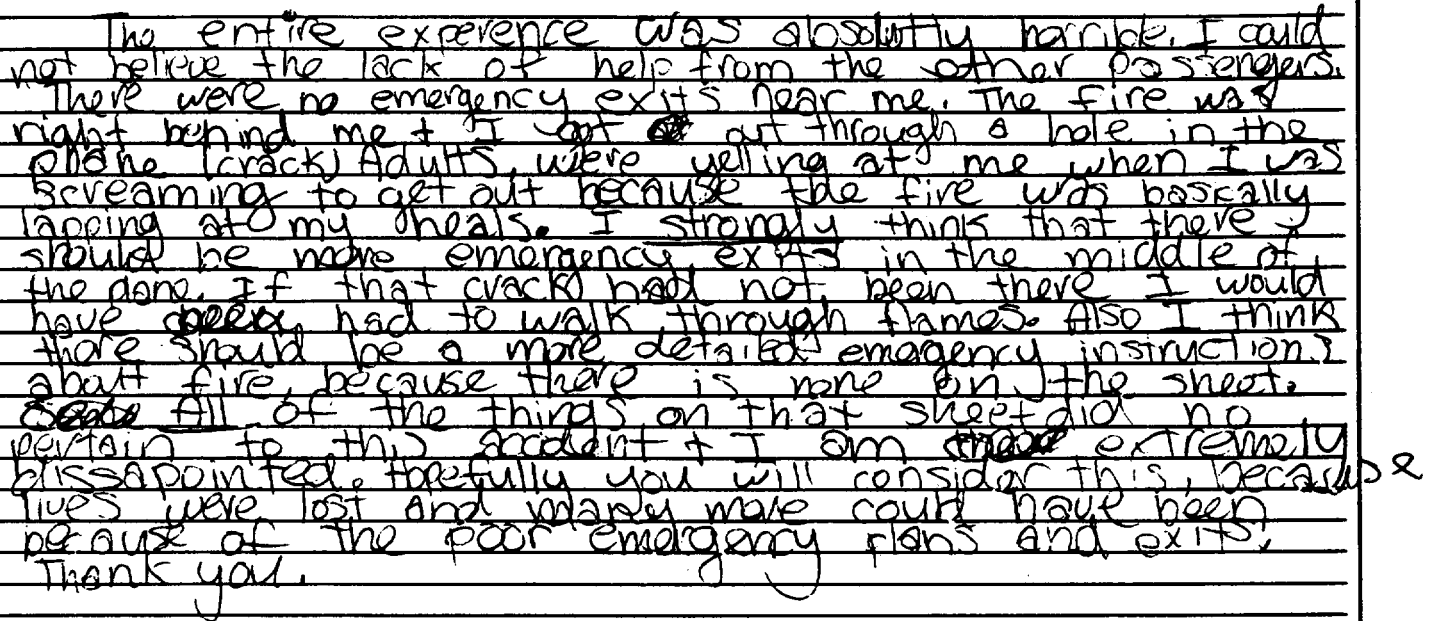 The entire experence was absolutly horrible. I could
not believe the lack of help from the other passengers.
There were no emergency exits near me. The fire was
right behind me + I got out through a hole in the
plane (crack) Adults, were yelling at me when I was
screaming to get out because the fire was bascally
lapping at my heals. I strongly think that there
should be more emergency exits in the middle of
the plane. If that crack had not been there I would
have had to walk through flames. Also I think
there should be a more detailed emergency instructions
about fire, because there is none on the sheet.
All of the things on that sheet did no
pertain to this accident + I am extremely
dissapointed. Hopefully you will consider this, because
lives were lost and many more could have been
because of the poor emergency plans and exits.
Thank you.